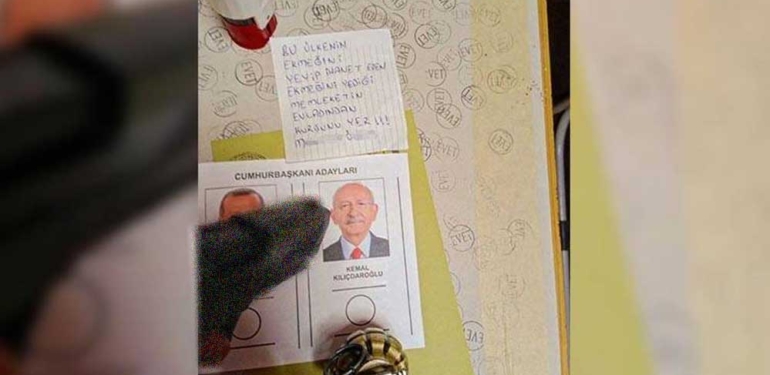 BU ÜLKENİN
EKMEĞİNİ
YEYİP İHANET EDEN
EKMEĞİNİ YEDİĞİ
MEMLEKETİN
EVLADINDAN
KURŞUNU YER!!!
CUMHURBAŞKANI ADAYLARI
KEMAL
KILIÇDAROĞLU
EVET
EVET
EVET
EVET